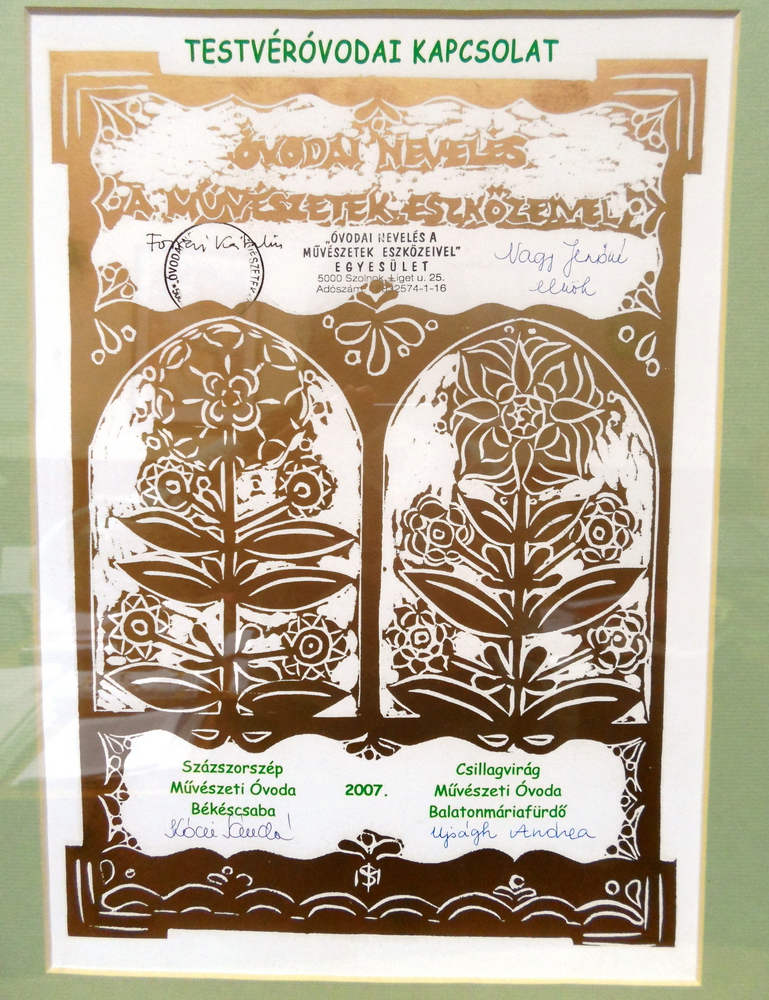 TESTVÉRÓVODAI KAPCSOLAT
ÓVODAI NEVELÉS
"A MŰVÉSZETEK ESZKÖZEIVEL"
„ÓVODAI NEVELÉS A
MŰVÉSZETEK ESZKÖZEIVEL”
EGYESÜLET
5000 Szolnok, Liget u. 25.
Adószám: 2574-1-16
Nagy Jenőné
elnök
Százszorszép
Művészeti Óvoda
Békéscsaba
2007.
Csillagvirág
Művészeti Óvoda
Balatonmáriafürdő
Ujságh Andrea